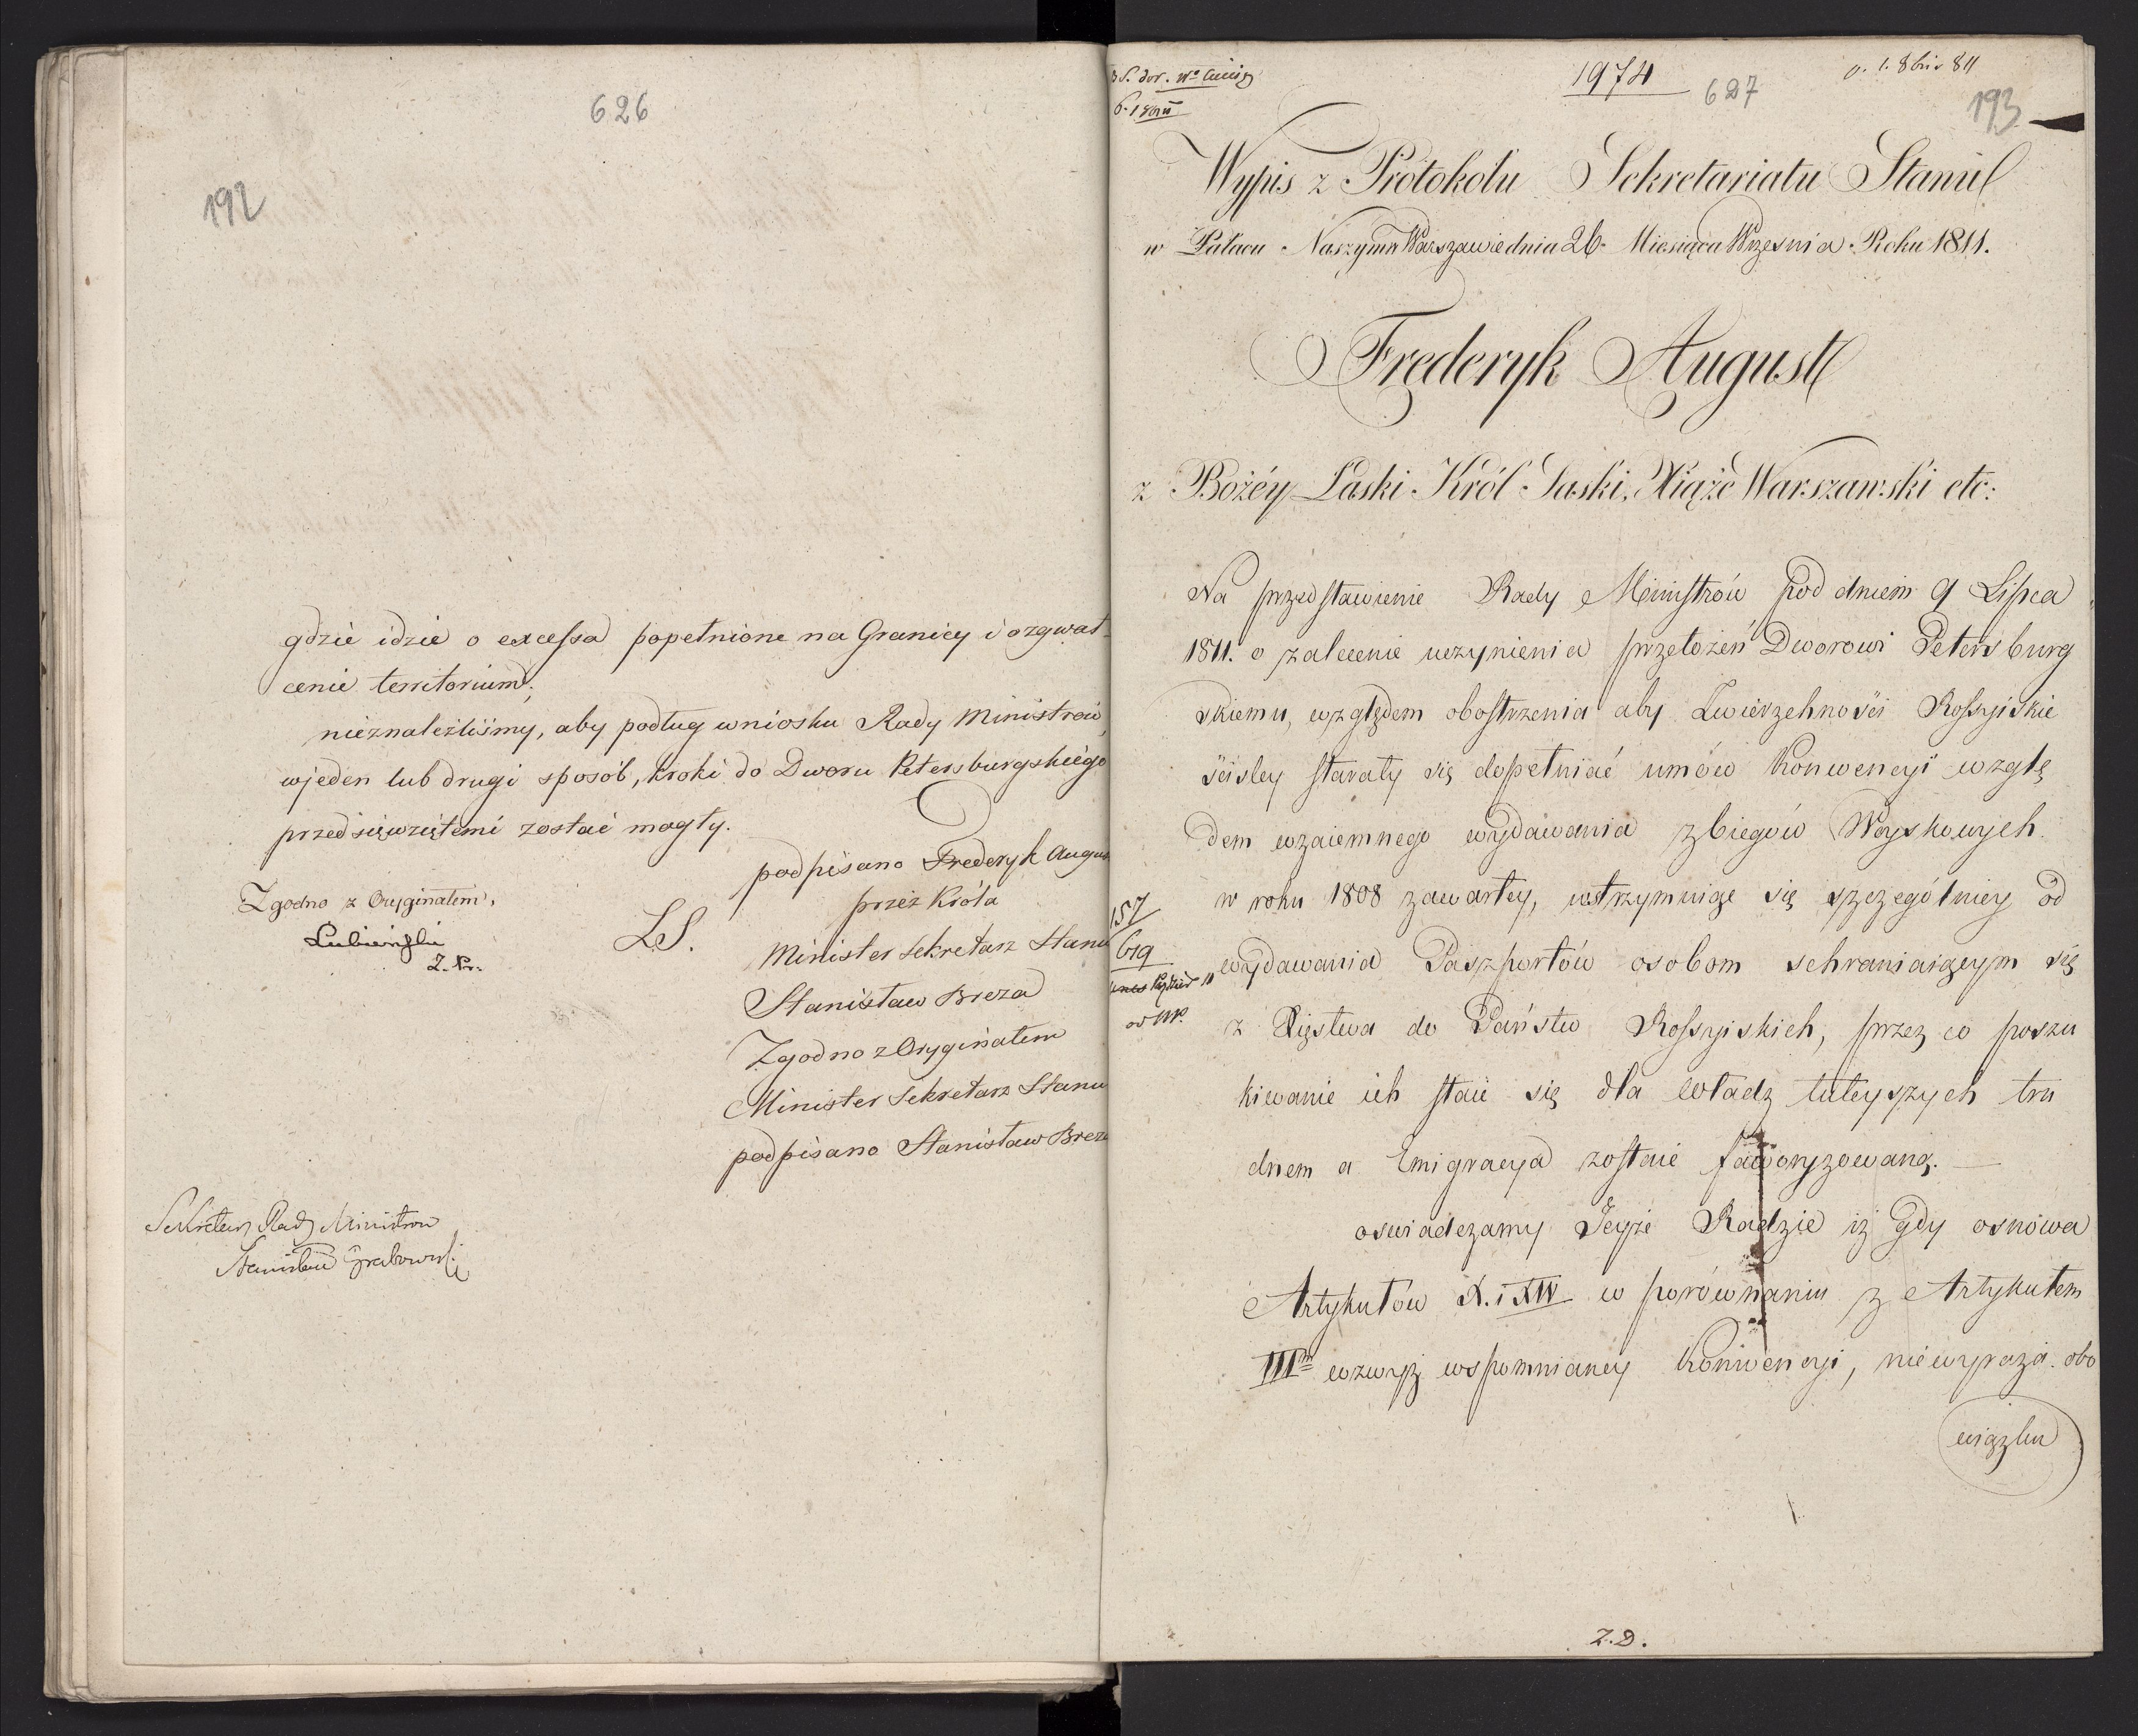 626
192
gdzie idzie o excessa popełnione na Granicy i o zgwał-
cenie territorium;
nieznaleźliśmy, aby podług wniosku Rady Ministrów,
w jeden lub drugi sposób, kroki do Dworu Petersburgskiego
przedsięwziętemi zostać mogły.
podpisano Frederyk Augus
przez Króla
Minister Sekretarz Stanu
Stanisław Breza
Zgodno z Oryginałem
Minister Sekretarz Stanu
podpisano Stanisław Brez
Zgodno z Oryginałem,
Lubieński
LS.
Sekretarz Rady Ministrow
Stanisław Grabowski
1974
627
193
Wypis z Protokołu Sekretariatu Stanu
w Pałacu Naszym w Warszawie dnia 26. Miesiąca Września Roku 1811.
Frederyk August
z Bożéy Łaski Król Saski, Xiąże Warszawski etc:
Na przedstawienie Rady Ministrów pod dniem 9 Lipca
1811. o zalecenie uczynienia przełożeń Dworowi Petersburg
skiemu, względem obostrzenia aby Zwierzchności Rossyiskie
ściśley starały się dopełniać umów Konwencyi wzglę
dem wzaiemnego wydawania zbiegów Woyskowych
w roku 1808 zawartey, wstrzymuiąc się szczególniey od
wydawania Paszportów osobom schraniaiącym się
z Xięstwa do Państw Rossyiskich, przez co poszu
kiwanie ich staie się dla władz tuteyszych tru
dnem a Emigracya zostaie faworyzowaną. —
oswiadczamy Teyże Radzie iż gdy osnowa
Artykułów X. i XIV w porównaniu z Artykułem
III<sup>m</sup> wzwyż wspomnianey Konwencyi, niewyraża obo
wiązku
157
619
Z.D.